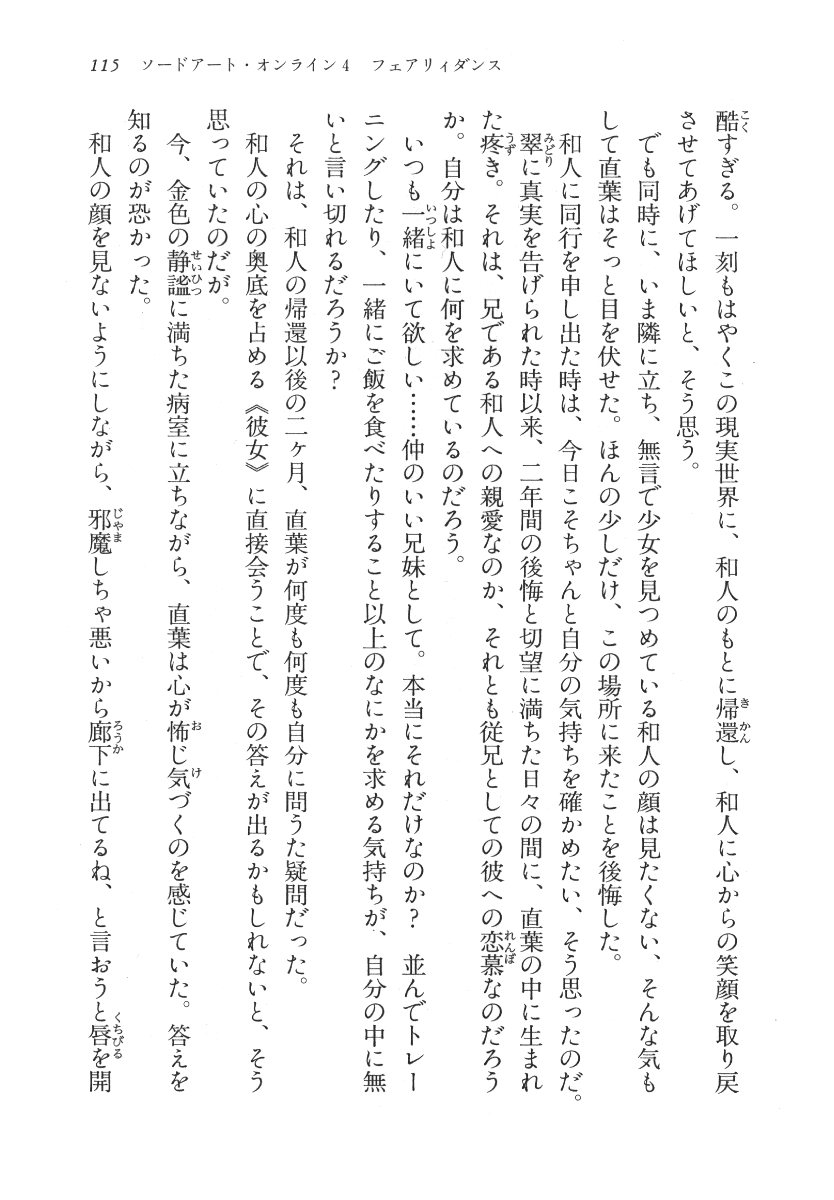 115　ソードアート・オンライン4　フェアリィダンス
酷すぎる。一刻もはやくこの現実世界に、和人のもとに帰還し、和人に心からの笑顔を取り戻
させてあげてほしいと、そう思う。
　でも同時に、いま隣に立ち、無言で少女を見つめている和人の顔は見たくない、そんな気も
して直葉はそっと目を伏せた。ほんの少しだけ、この場所に来たことを後悔した。
　和人に同行を申し出た時は、今日こそちゃんと自分の気持ちを確かめたい、そう思ったのだ。
　翠に真実を告げられた時以来、二年間の後悔と切望に満ちた日々の間に、直葉の中に生まれ
た疼き。それは、兄である和人への親愛なのか、それとも従兄としての彼への恋慕なのだろう
か。自分は和人に何を求めているのだろう。
　いつも一緒にいて欲しい……仲のいい兄妹として。本当にそれだけなのか？　並んでトレー
ニングしたり、一緒にご飯を食べたりすること以上のなにかを求める気持ちが、自分の中に無
いと言い切れるだろうか？
　それは、和人の帰還以後の二ヶ月、直葉が何度も何度も自分に問うた疑問だった。
　和人の心の奥底を占める《彼女》に直接会うことで、その答えが出るかもしれないと、そう
思っていたのだが。
　今、金色の静謐に満ちた病室に立ちながら、直葉は心が怖じ気づくのを感じていた。答えを
知るのが恐かった。
　和人の顔を見ないようにしながら、邪魔しちゃ悪いから廊下に出てるね、と言おうと唇を開